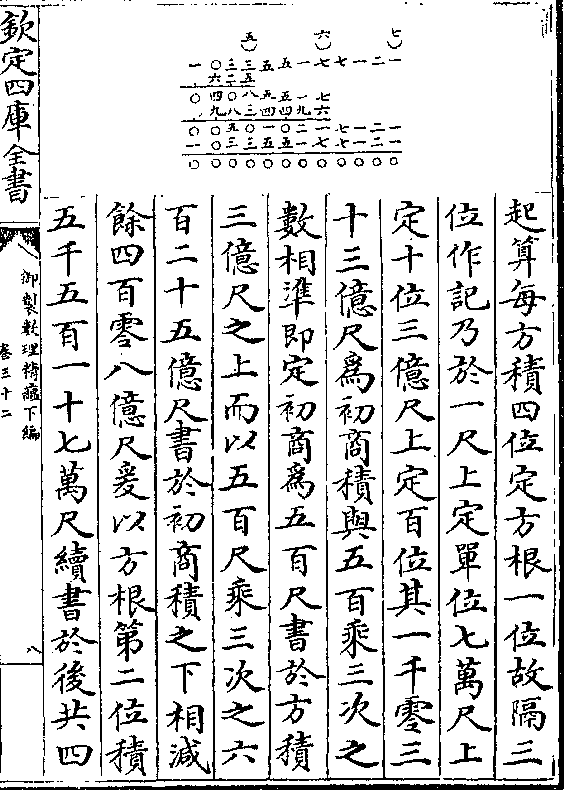 五 六 七
一〇三三五五一七七一二一
六二五
〇四〇八五五一七
九八三四四九六
〇〇五〇一〇二一七一二一
一〇三三五五一七七一二一
〇〇〇〇〇〇〇〇〇〇〇〇
起算每方積四位定方根一位故隔三
位作記乃於一尺上定單位七萬尺上
定十位三億尺上定百位其一千零三
十三億尺為初商積與五百乘三次之
數相準即定初商為五百尺書於方積
三億尺之上而以五百尺乘三次之六
百二十五億尺書於初商積之下相減
餘四百零八億尺爰以方根第二位積
五千五百一十七萬尺續書於後共四
欽定四庫全書
御製數理精蘊下編
卷三十二
八